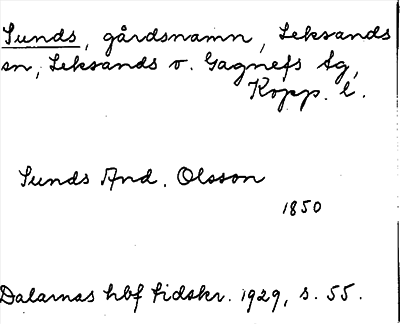 Sunds, gårdsnamn, Leksands
sn, Leksands o. Gagnefs tg,
Kopp. l.
Sunds And. Olsson
1850
Dalarnas hbf tidskr. 1929, s. 55.